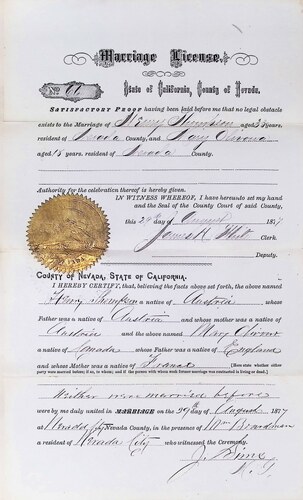 Marriage License.
No. 66 State of California, County of Nevada.
SATISFACTORY PROOF having been laid before me that no legal obstacle
exists to the Marriage of Henry Thompson aged 34 years,
resident of Nevada County, and Mary
aged 18 years. resident of Nevada County.
Authority for the celebration thereof is hereby given.
IN WITNESS WHEREOF, I have hereunto set my hand
and the Seal of the County Court of said County,
this 29 day of August 1877
James Clerk.
Deputy.
COUNTY OF NEVADA, STATE OF CALIFORNIA.
I HEREBY CERTIFY, that, believing the facts above set forth, the above named
Henry Thompson a native of Austria whose
Father was a native of Austria and whose mother was a native of
Austria and the above named Mary
a native of Canada whose Father was a native of England
and whose Mother was a Native of France
Neither were married before
were by me duly united in MARRIAGE on the 29th August 1877
at Nevada City Nevada County, in the presence of Wm Boardman
a resident of Nevada City who witnessed the Ceremony.
J. Sims